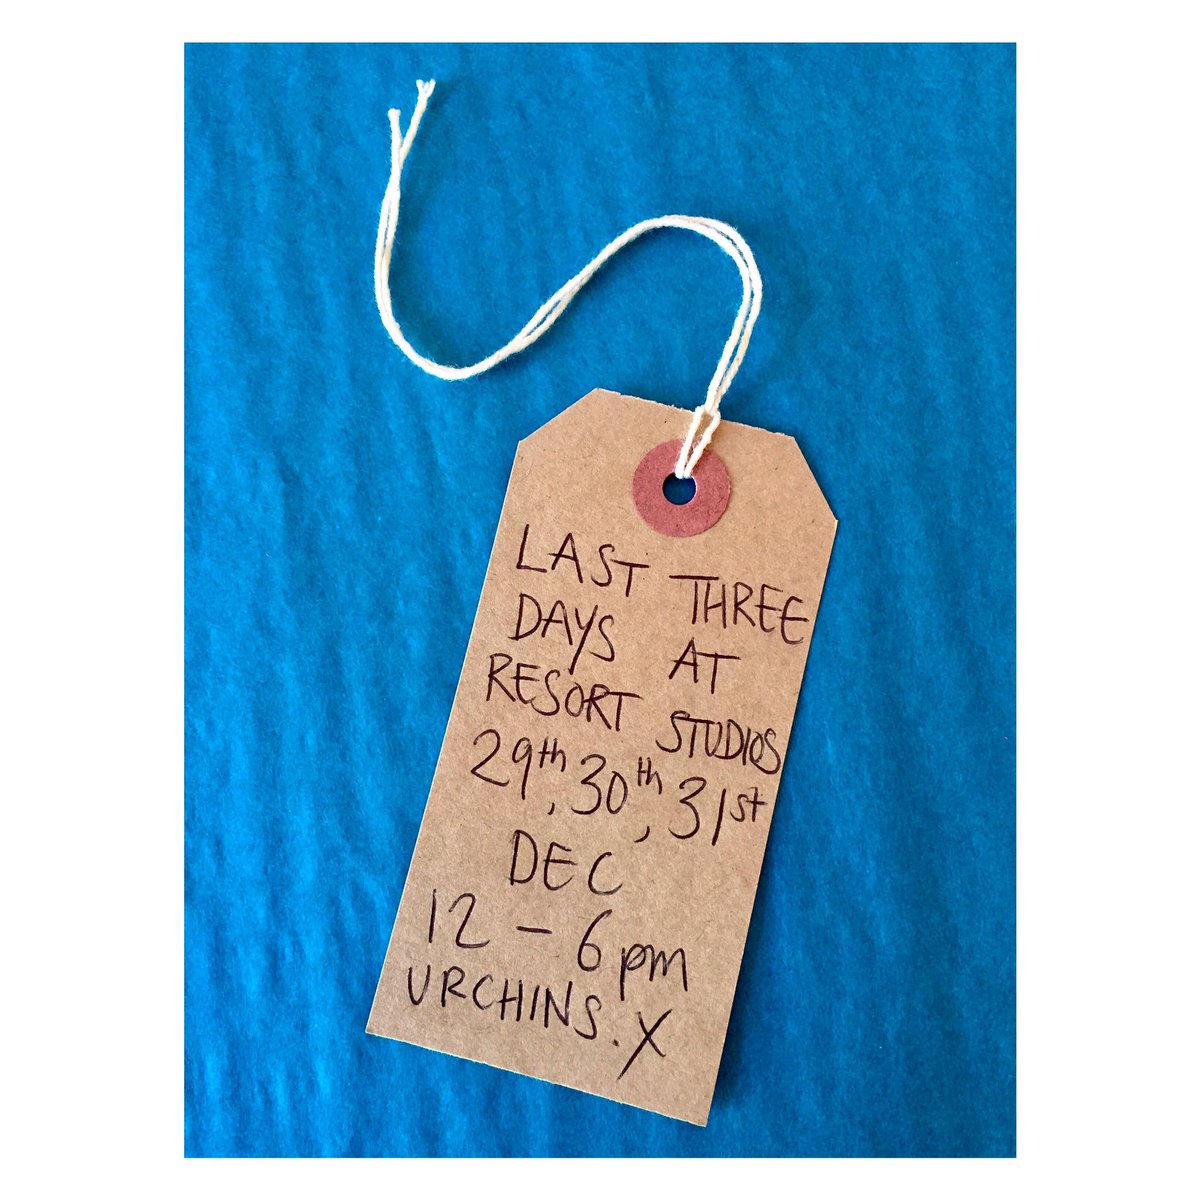 LAST THREE
DAYS AT
RESORT STUDIOS
29th, 30th, 31st
DEC
12 - 6pm
URCHINS. X